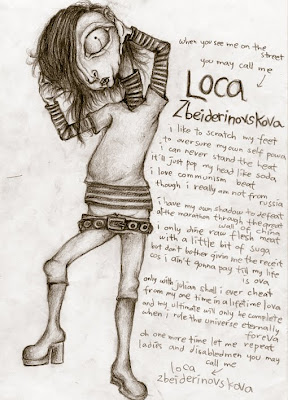 when you see me on the
street
you may call me
LOCA
Zbeiderinovskova
i like to scratch my feet
to oversure my own self powa
i can never stand the heat
it'll just pop my head like soda
i love communism beat
though i really am not from
russia
i have my own shadow to defeat
at the marathon through the great
wall of china
i only dine raw flesh meat
with a little bit of suga
but dont bother givin me the receit
cos i ain't gonna pay till my life
is ova
only with julian shall i ever cheat
from my one time in a lifetime lova
and my ultimate will only be complete
when i rule the universe eternally
foreva
oh one more time let me repeat
ladies and disabledmen you may
call me
loca
zbeiderinovskova